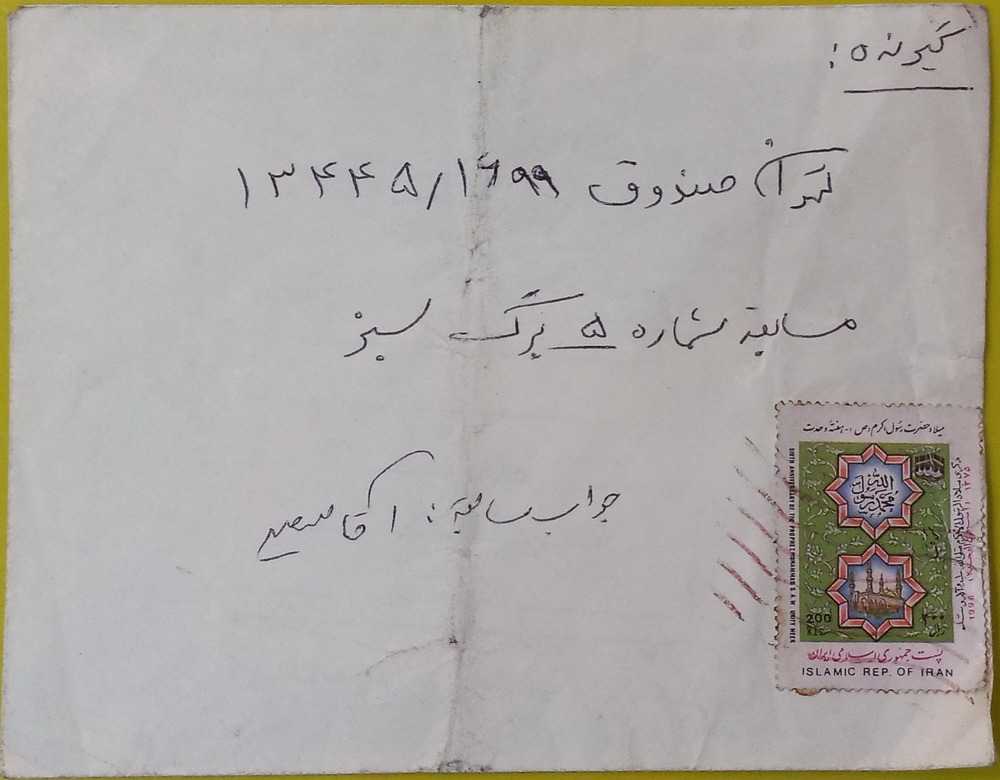 گیرنده:
تهران صندوق ۱۳۴۴۵/۱۶۹۹
مسابقه شماره ۵ برگ سبز
جواب مسابقه: آقا
میلاد حضرت رسول اکرم (ص) - هفته وحدت
BIRTH ANNIVERSARY OF THE PROPHET MOHAMMAD S.A.W. UNITY WEEK
الله
محمد رسول
۱۳۷۵
1996
200
RLS
۲۰۰
ریال
پست جمهوری اسلامی ایران
ISLAMIC REP. OF IRAN